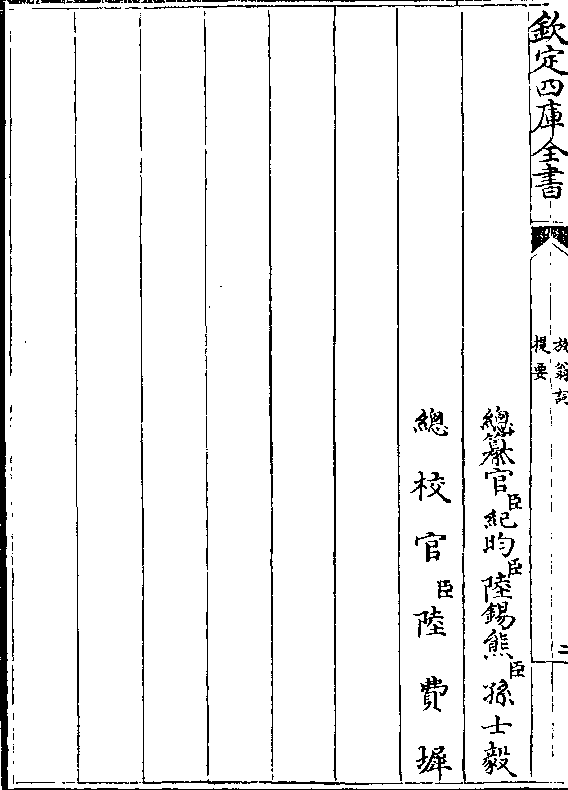 欽定四庫全書
放翁詞
提要
二
總纂官臣紀昀臣陸錫熊臣孫士毅
總校官臣陸費墀